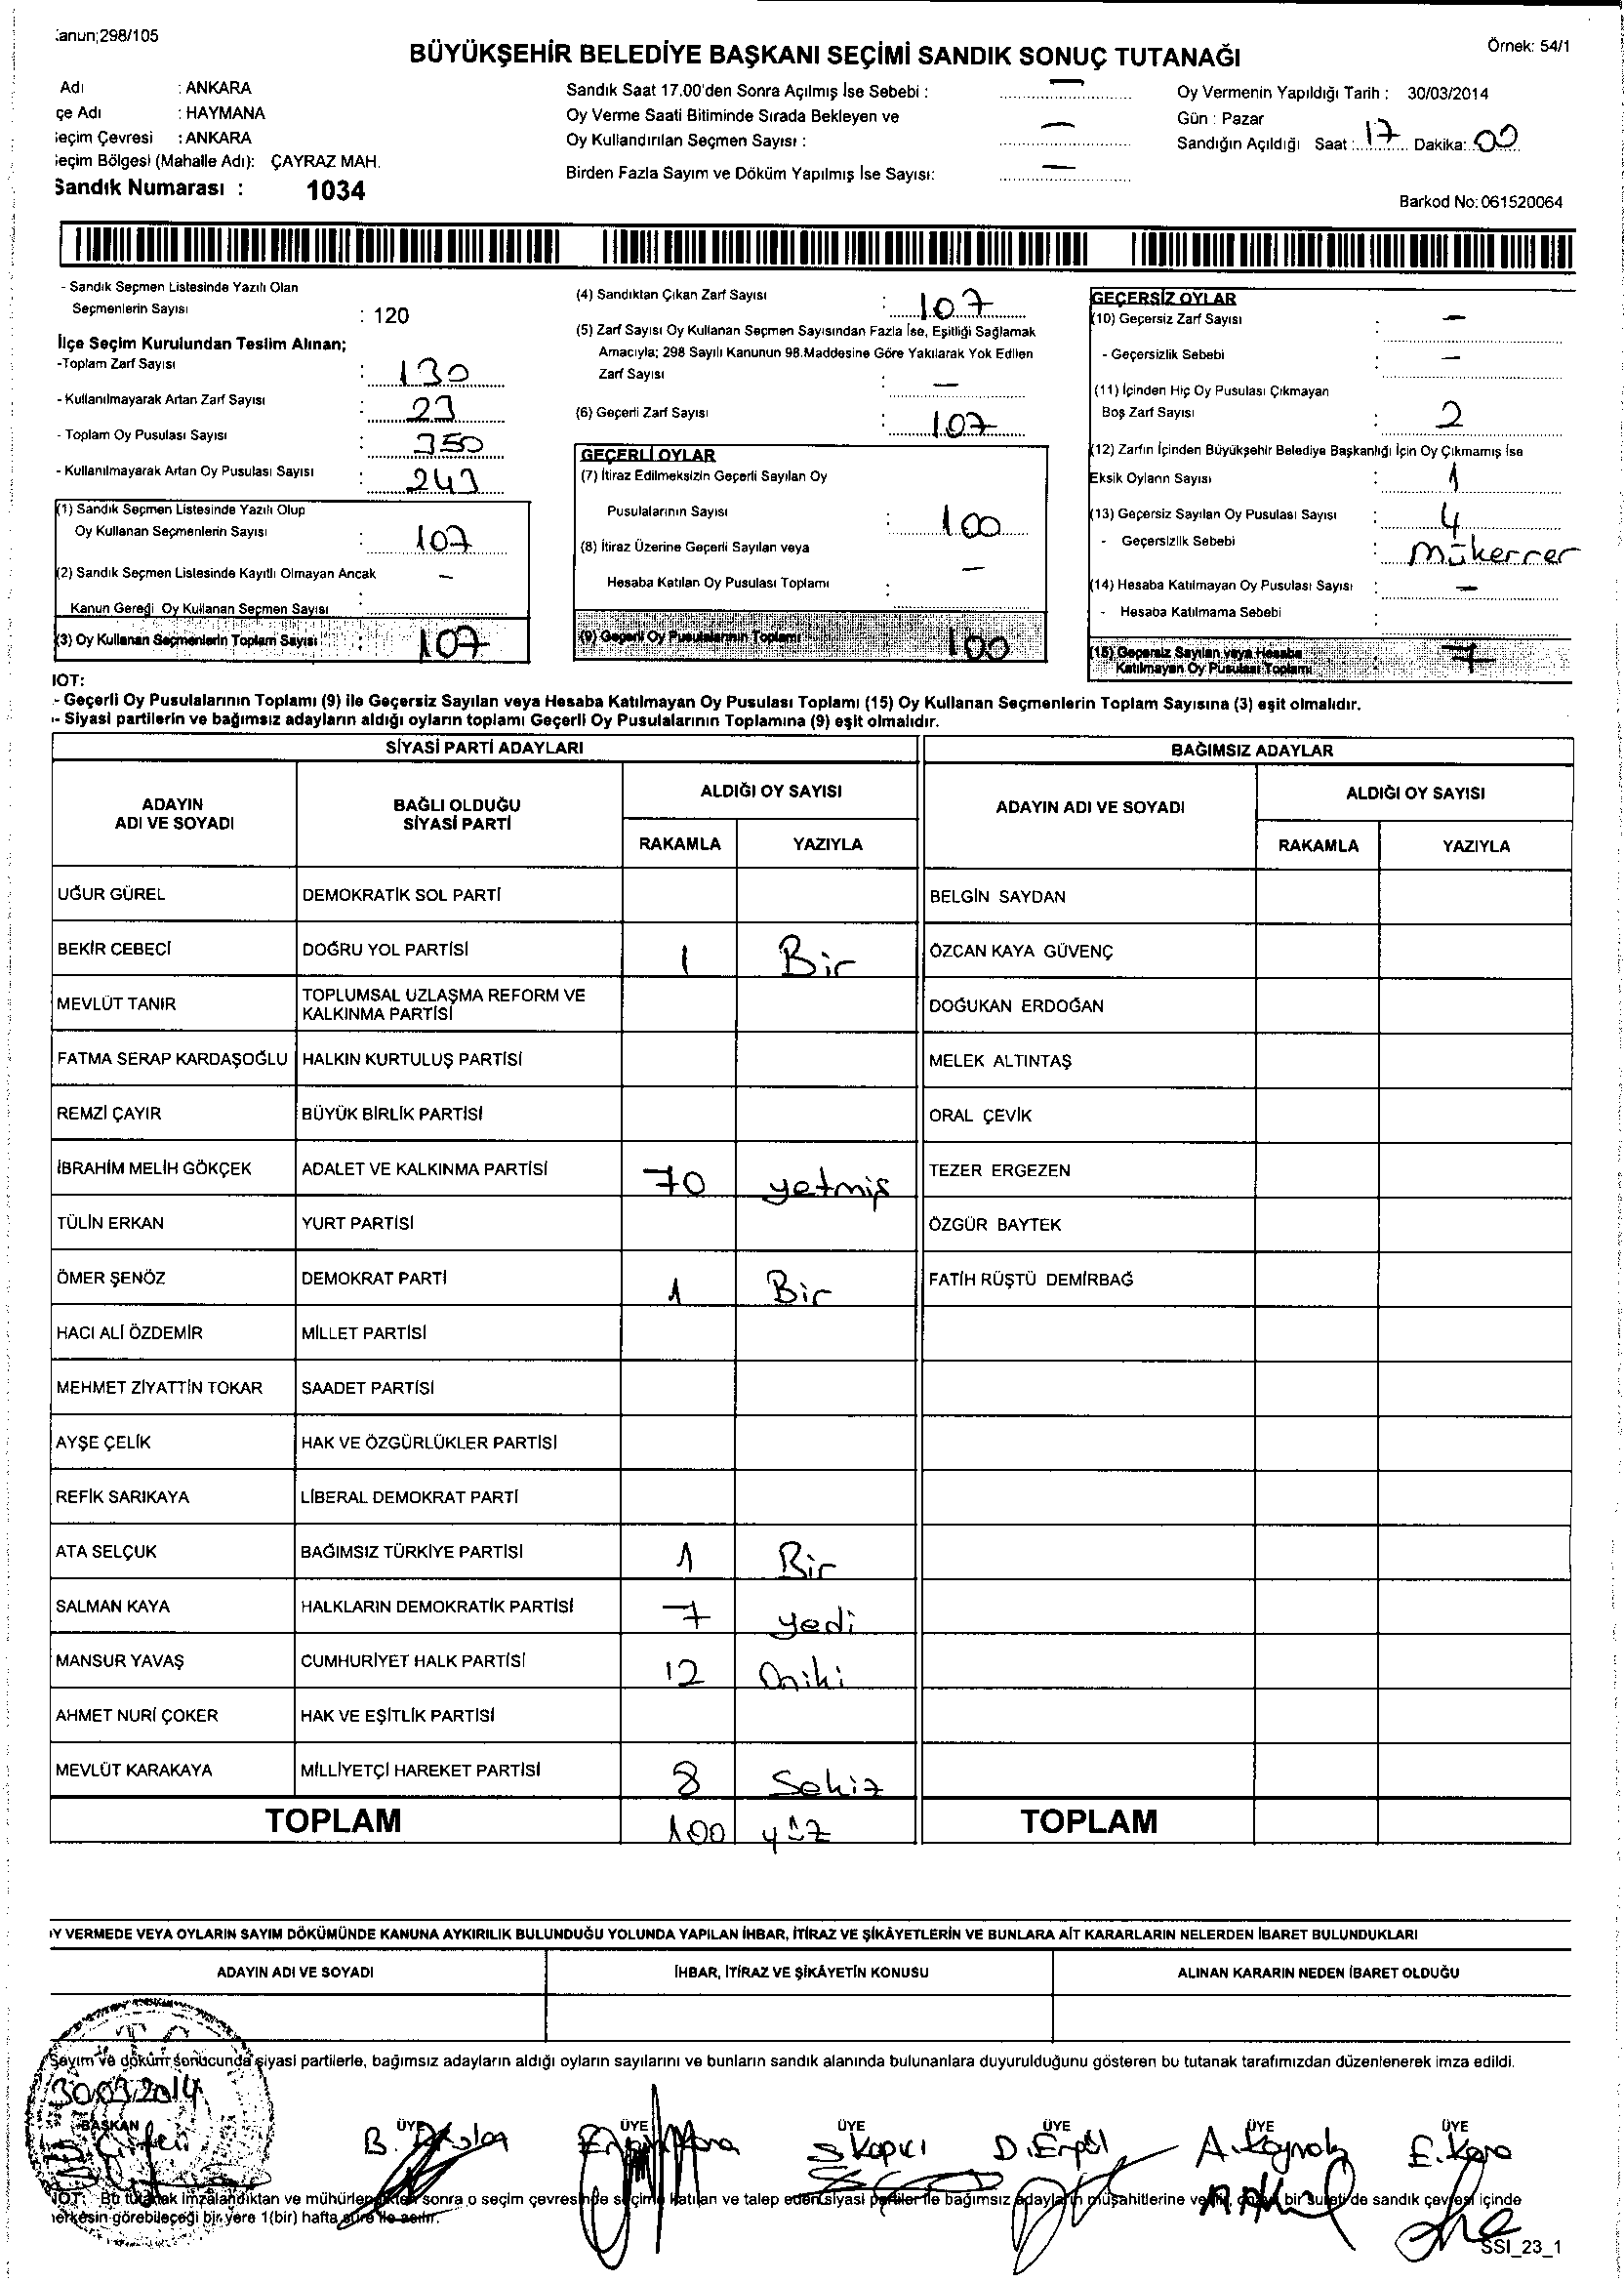 Kanun;298/105
Örnek: 54/1
BÜYÜKŞEHİR BELEDİYE BAŞKANI SEÇİMİ SANDIK SONUÇ TUTANAĞI
Adı : ANKARA
çe Adı : HAYMANA
eçim Çevresi : ANKARA
eçim Bölgesi (Mahalle Adı): ÇAYRAZ MAH.
Sandık Numarası : 1034
Sandık Saat 17.00'den Sonra Açılmış İse Sebebi : —
Oy Verme Saati Bitiminde Sırada Bekleyen ve
Oy Kullandırılan Seçmen Sayısı : —
Birden Fazla Sayım ve Döküm Yapılmış İse Sayısı: —
Oy Vermenin Yapıldığı Tarih : 30/03/2014
Gün : Pazar
Sandığın Açıldığı Saat : 17 Dakika: 00
Barkod No: 061520064
- Sandık Seçmen Listesinde Yazılı Olan
Seçmenlerin Sayısı : 120
İlçe Seçim Kurulundan Teslim Alınan;
-Toplam Zarf Sayısı : 130
- Kullanılmayarak Artan Zarf Sayısı : 23
- Toplam Oy Pusulası Sayısı : 350
- Kullanılmayarak Artan Oy Pusulası Sayısı : 243
(1) Sandık Seçmen Listesinde Yazılı Olup
Oy Kullanan Seçmenlerin Sayısı : 107
(2) Sandık Seçmen Listesinde Kayıtlı Olmayan Ancak —
Kanun Gereği Oy Kullanan Seçmen Sayısı :
(3) Oy Kullanan Seçmenlerin Toplam Sayısı : 107
(4) Sandıktan Çıkan Zarf Sayısı : 107
(5) Zarf Sayısı Oy Kullanan Seçmen Sayısından Fazla İse, Eşitliği Sağlamak
Amacıyla; 298 Sayılı Kanunun 98.Maddesine Göre Yakılarak Yok Edilen
Zarf Sayısı : —
(6) Geçerli Zarf Sayısı : 107
GEÇERLİ OYLAR
(7) İtiraz Edilmeksizin Geçerli Sayılan Oy
Pusulalarının Sayısı : 100
(8) İtiraz Üzerine Geçerli Sayılan veya
Hesaba Katılan Oy Pusulası Toplamı : —
(9) Geçerli Oy Pusulalarının Toplamı 100
GEÇERSİZ OYLAR
(10) Geçersiz Zarf Sayısı : —
- Geçersizlik Sebebi : —
(11) İçinden Hiç Oy Pusulası Çıkmayan
Boş Zarf Sayısı : 2
(12) Zarfın İçinden Büyükşehir Belediye Başkanlığı İçin Oy Çıkmamış İse
Eksik Oyların Sayısı : 1
(13) Geçersiz Sayılan Oy Pusulası Sayısı : 4
- Geçersizlik Sebebi : Mükerrer
(14) Hesaba Katılmayan Oy Pusulası Sayısı : —
- Hesaba Katılmama Sebebi :
(15) Geçersiz Sayılan veya Hesaba
Katılmayan Oy Pusulası Toplamı : 7
NOT:
- Geçerli Oy Pusulalarının Toplamı (9) ile Geçersiz Sayılan veya Hesaba Katılmayan Oy Pusulası Toplamı (15) Oy Kullanan Seçmenlerin Toplam Sayısına (3) eşit olmalıdır.
- Siyasi partilerin ve bağımsız adayların aldığı oyların toplamı Geçerli Oy Pusulalarının Toplamına (9) eşit olmalıdır.
SİYASİ PARTİ ADAYLARI BAĞIMSIZ ADAYLAR
ADAYIN ADI VE SOYADI BAĞLI OLDUĞU SİYASİ PARTİ ALDIĞI OY SAYISI ADAYIN ADI VE SOYADI ALDIĞI OY SAYISI
RAKAMLA YAZIYLA RAKAMLA YAZIYLA
UĞUR GÜREL DEMOKRATİK SOL PARTİ BELGİN SAYDAN
BEKİR CEBECİ DOĞRU YOL PARTİSİ 1 Bir ÖZCAN KAYA GÜVENÇ
MEVLÜT TANIR TOPLUMSAL UZLAŞMA REFORM VE KALKINMA PARTİSİ DOĞUKAN ERDOĞAN
FATMA SERAP KARDAŞOĞLU HALKIN KURTULUŞ PARTİSİ MELEK ALTINTAŞ
REMZİ ÇAYIR BÜYÜK BİRLİK PARTİSİ ORAL ÇEVİK
İBRAHİM MELİH GÖKÇEK ADALET VE KALKINMA PARTİSİ 70 yetmiş TEZER ERGEZEN
TÜLİN ERKAN YURT PARTİSİ ÖZGÜR BAYTEK
ÖMER ŞENÖZ DEMOKRAT PARTİ 1 Bir FATİH RÜŞTÜ DEMİRBAĞ
HACI ALİ ÖZDEMİR MİLLET PARTİSİ
MEHMET ZİYATTİN TOKAR SAADET PARTİSİ
AYŞE ÇELİK HAK VE ÖZGÜRLÜKLER PARTİSİ
REFİK SARIKAYA LİBERAL DEMOKRAT PARTİ
ATA SELÇUK BAĞIMSIZ TÜRKİYE PARTİSİ 1 Bir
SALMAN KAYA HALKLARIN DEMOKRATİK PARTİSİ 7 yedi
MANSUR YAVAŞ CUMHURİYET HALK PARTİSİ 12 Oniki
AHMET NURİ ÇOKER HAK VE EŞİTLİK PARTİSİ
MEVLÜT KARAKAYA MİLLİYETÇİ HAREKET PARTİSİ 8 Sekiz
TOPLAM 100 yüz TOPLAM
OY VERMEDE VEYA OYLARIN SAYIM DÖKÜMÜNDE KANUNA AYKIRILIK BULUNDUĞU YOLUNDA YAPILAN İHBAR, İTİRAZ VE ŞİKÂYETLERİN VE BUNLARA AİT KARARLARIN NELERDEN İBARET BULUNDUKLARI
ADAYIN ADI VE SOYADI İHBAR, İTİRAZ VE ŞİKÂYETİN KONUSU ALINAN KARARIN NEDEN İBARET OLDUĞU
Sayım ve döküm sonucunda siyasi partilerle, bağımsız adayların aldığı oyların sayılarını ve bunların sandık alanında bulunanlara duyurulduğunu gösteren bu tutanak tarafımızdan düzenlenerek imza edildi.
30.03.2014
BAŞKAN ÜYE ÜYE ÜYE ÜYE ÜYE ÜYE
S Kapıcı E. Kara
NOT: Bu tutanak imzalandıktan ve mühürlendikten sonra o seçim çevresinde seçime katılan ve talep eden siyasi partiler ile bağımsız adayların müşahitlerine verilir, onaylı bir sureti de sandık çevresi içinde
herkesin görebileceği bir yere 1(bir) hafta süre ile asılır.
SSI_23_1